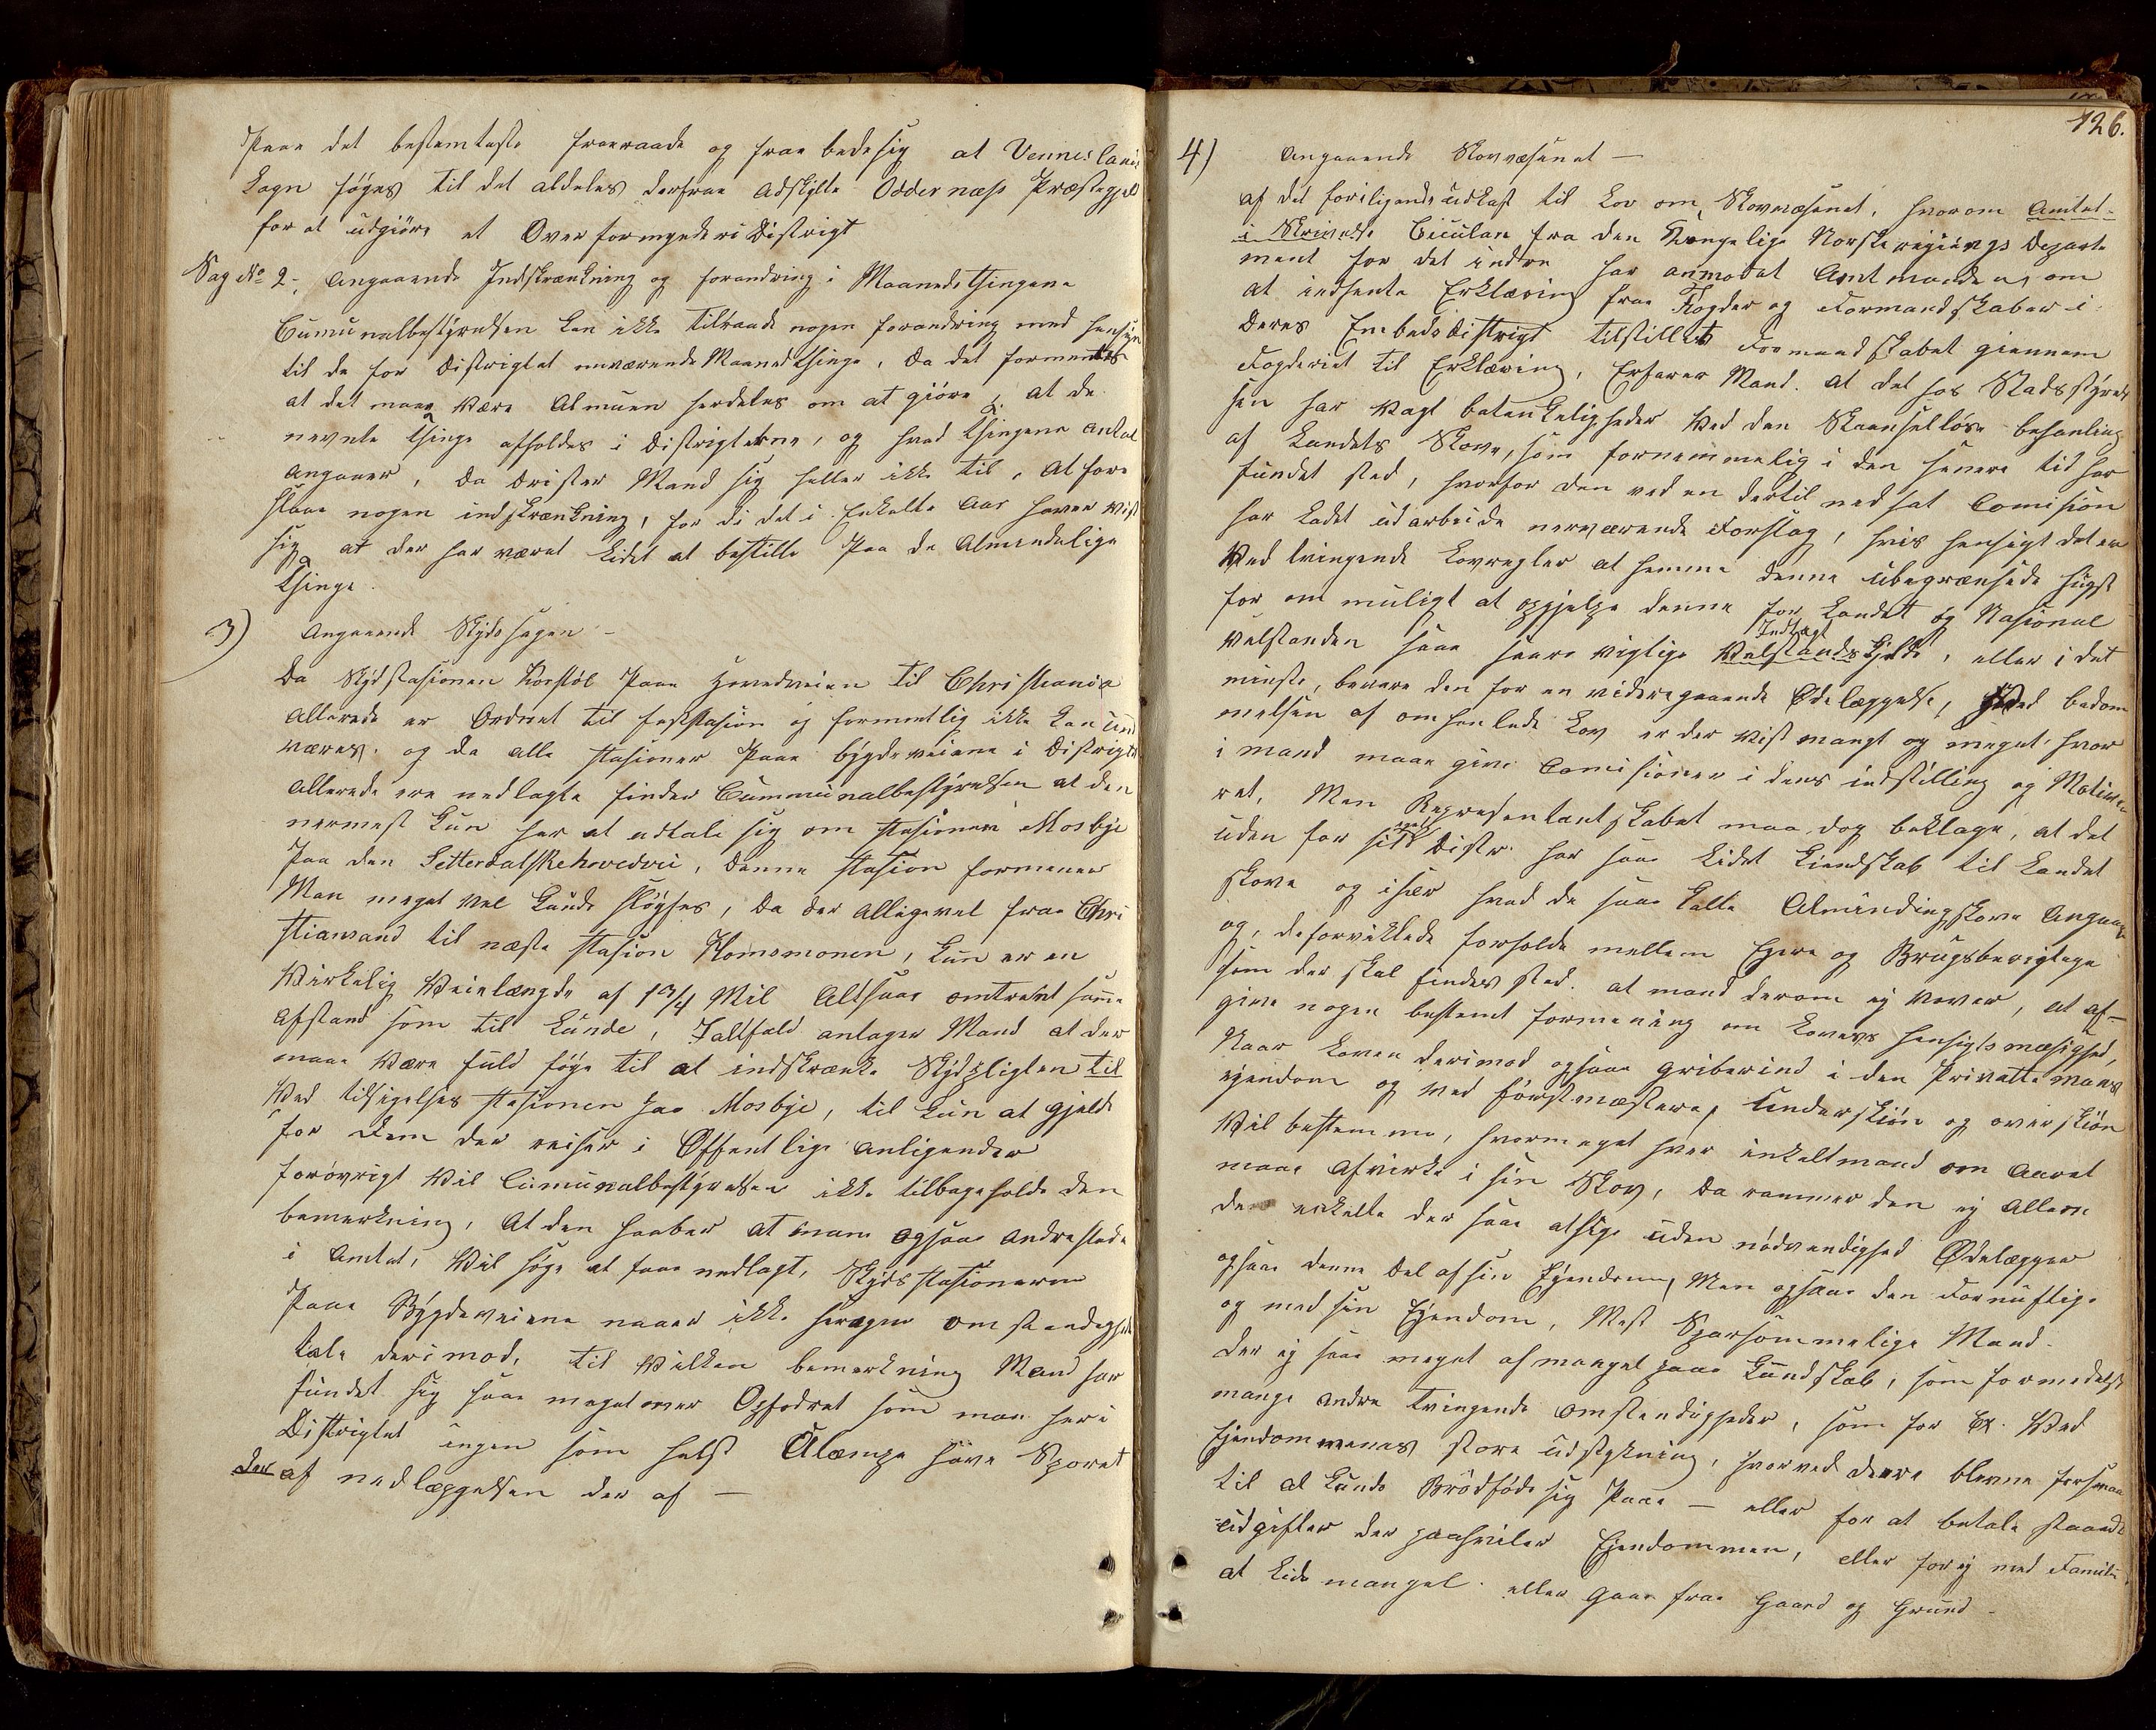 Paae det bestemteste fraeraade og frae bede sig at Venneslands
Sogn føyes til det aldeles derfrae adskilte Oddernæss Præstegjeld
for at udgiöre et Overformynderi Distrigt
Sag No 2 - Angaaende Indskrænkning og forandring i Maanedsthingene
Cumunalbestÿrelsen kan ikke tilraade nogen forandring med hensyn
til de for Distrigtet nuværende Maanedsthinge, da det formentes
at det maae være Almuen herdeles om at giöre, at de
nevnte thinge afholdes i Distrigterne, og hvad thingene antal
angaaer, da drister Mand sig heller ikke til, at fore
slaae nogen indskrænkning, for di det i Enkelte Aar haver vist
sig at der har været Lidet at bestille Paa de Almindelige
thinge.
3) Angaaende Skÿds sagen -
Da Skÿdstasionen Korsløb Paae hovedveien til Christiania
Allerede er Ordnet til faststasion og formentlig ikke kan und
væres. og da alle stasioner Paae bÿgdeveiene i Distrigtet
Allerede ere nedlagte finder Cummunalbestÿrelsen at den
nermest kun har at udtale sig om stasionen Mosbÿe
Paa den Setterdalske hovedvei, denne stasion formener
Man meget vel kunde sløyfes, da der alligevel frae Chri
stiansand til næste stasion Homsmonen, kun er en
Virkelig Veielængde af 1 3/4 Mil Altsaae omtrent samme
Afstand som til Lunde, Ialtfald antager Mand at der
maae være fuld føye til at indskrænke Skÿdspligten til
Ved tilsigelses stasionen paa Mosbÿe, til kun at gjelde
for dem der reiser i Offentlige anligender
forøvrigt vil Cumunalbestÿrelsen ikke tilbageholde den
bemerkning, at den haaber at man ogsaae andre steder
i Amtet, vil søge at faae nedlagt, Skÿds stasionerne
Paae Bÿgdeveiene naaer ikke serægne omstendigheder
tale derimod, til vilken bemerkning Mand har
fundet sig saae meget mer Opfodret som man her i
Distrigtet ingen som helst Ulæmpe have Sporet
der af nedlæggelsen der af —
126.
4) Angaaende Skovvæsenet —
af det foreligende udkast til Lov om Skovvæsenet, hvorom Amtet
i Skrivelse Circulær fra den Kongelige Norske regierings Departe
ment for det indre har anmodet Amtmanden, om
at indhente Erklæring frae Fogder og Formandskaber i
deres Embedsdistrigt tilstillet Formandskabet giennem
Fogderiet til Erklæring, Erfarer Mand. at det hos Stadsstÿrel
sen har vagt betenkeligheder ved den Skaanselløse behanling
af Landets Skove, som fornemmelig i den senere tid har
fundet sted, hvorfor den ved en dertil nedsat Comision
har ladet udarbeide nerværende Forslag, hvis hensigt det er
Ved tvingende Lovregler at hemme denne ubegrænsede hugst
for om muligt at opjelpe denne for Landet og Nasional
velstanden saae saare vigtige Indtægt Velstandskjelde, eller i det
minste, bevare den for en videregaaende Ødelæggelse, Ved bedøm
melsen af omhanlede Lov er der vist mangt og meget, hvor
i mand maae give Comisionen i dens indstilling og Motiver
ret, Men Representantskabet maa dog beklage, at det
uden for sit Distr. har saae Lidet Kiendskab til Landet
skove og især hvad de saae kalte Almindingskove Angaaer
og, de forviklede forholde mellem Eyere og Brugsberettigede
som der skal findes sted. at mand derom ej vover, at af-
give nogen bestemt formening om Lovens hensigtsmæsighed,
Naar Loven derimod ogsaae griber ind i den Privatte mans
ejendom og ved forstmæstere, Underskiön og overskiön
Vil bestemme, hvormeget hver enkeltmand om Aaret
maae Afvirke i sin Skov, da rammer den ej Allene
de enkelte der saae atsige uden nödvendighed Ødelægger
ogsaae denne Del af sin Ejendom, Men ogsaae den Fornuftige
og med sin Ejendom, Mest Sparsommelige Mand.
der ej saae meget af mangel paae kundskab, som formedelst
mange andre tvingende omstendigheder, som for Ex. Ved
Ejendommenes store udstykning, hvorved denne blevne forsmaa
til at kunde Brödföde sig Paae — eller for at betale staaende
udgifter der paahviler Ejendommen, eller for ej med Familie
at Lide mangel. eller gaae frae Gaard og Grund -